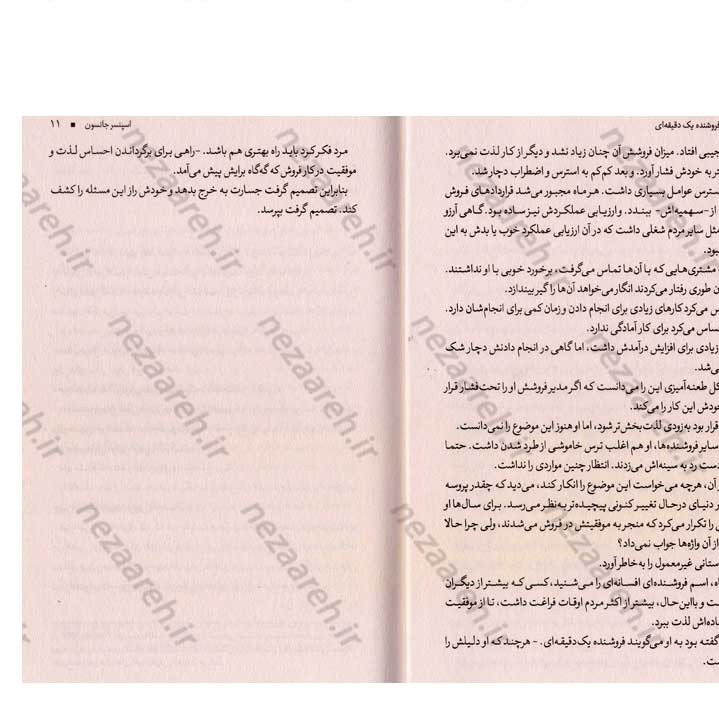 فروشنده یک دقیقه‌ای
جیبی افتاد. میزان فروشش آن چنان زیاد نشد و دیگر از کار لذت نمی‌برد.
به خودش فشار آورد. و بعد کم‌کم به استرس و اضطراب دچار شد.
سترس عوامل بسیاری داشت. هر ماه مجبور می‌شد قراردادهای فروش
از -سهمیه‌اش- ببندد. و ارزیابی عملکردش نیز ساده بود. گاهی آرزو
مثل سایر مردم شغلی داشت که در آن ارزیابی عملکرد خوب یا بدش به این
بود.
مشتری‌هایی که با آن‌ها تماس می‌گرفت، برخورد خوبی با او نداشتند.
طوری رفتار می‌کردند انگار می‌خواهد آن‌ها را گیر بیندازد.
می‌کرد کارهای زیادی برای انجام دادن و زمان کمی برای انجام‌شان دارد.
ساس می‌کرد برای کار آمادگی ندارد.
زیادی برای افزایش درآمدش داشت، اما گاهی در انجام دادنش دچار شک
می‌شد.
کل طعنه‌آمیزی این را می‌دانست که اگر مدیر فروشش او را تحت فشار قرار
خودش این کار را می‌کند.
قرار بود به‌زودی لذت‌بخش‌تر شود، اما او هنوز این موضوع را نمی‌دانست.
سایر فروشنده‌ها، او هم اغلب ترس خاموشی از طرد شدن داشت. حتما
دست رد به سینه‌اش می‌زدند. انتظار چنین مواردی را نداشت.
آن، هرچه می‌خواست این موضوع را انکار کند، می‌دید که چقدر پروسه
دنیای درحال تغییر کنونی پیچیده‌تر به‌نظر می‌رسد. برای سال‌ها او
را تکرار می‌کرد که منجر به موفقیتش در فروش می‌شدند، ولی چرا حالا
از آن واژه‌ها جواب نمی‌داد؟
ستانی غیرمعمول را به‌خاطر آورد.
اه، اسم فروشنده‌ای افسانه‌ای را می‌شنید، کسی که بیشتر از دیگران
و بااین‌حال، بیشتر از اکثر مردم اوقات فراغت داشت، تا از موفقیت
اده‌اش لذت ببرد.
گفته بود به او می‌گویند فروشنده یک‌دقیقه‌ای. - هرچند که او دلیلش را
ست.
اسپنسر جانسون ■ ۱۱
مرد فکر کرد باید راه بهتری هم باشد. -راهی برای برگرداندن احساس لذت و
موفقیت در کار فروش که گه‌گاه برایش پیش می‌آمد.
بنابراین تصمیم گرفت جسارت به خرج بدهد و خودش راز این مسئله را کشف
کند. تصمیم گرفت بپرسد.
nezaareh.ir